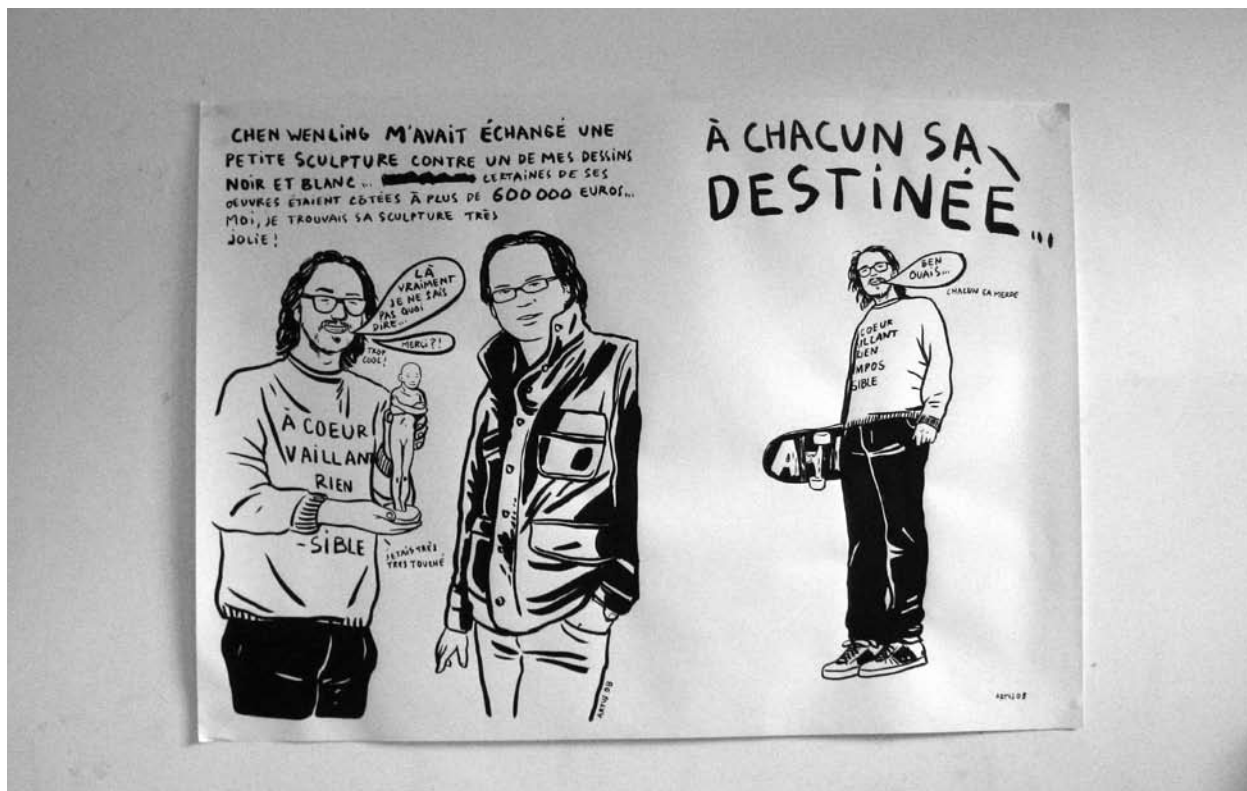 CHEN WENLING M'AVAIT ÉCHANGÉ UNE
PETITE SCULPTURE CONTRE UN DE MES DESSINS
NOIR ET BLANC... CERTAINES DE SES
ŒUVRES ÉTAIENT CÔTÉES À PLUS DE 600 000 EUROS...
MOI, JE TROUVAIS SA SCULPTURE TRÈS
JOLIE!
LÀ
VRAIMENT
JE NE SAIS
PAS QUOI
DIRE...
MERCI?!
TROP
COOL!
À COEUR
VAILLAN
RIEN
-SIBLE
J'ÉTAIS TRÈS
TRÈS TOUCHÉ
ARTUS 08
À CHACUN SA
DESTINÉE...
BEN
OUAIS...
CHACUN SA MERDE
COEUR
AILLANT
RIEN
MPOS
SIBLE
ARTUS 08